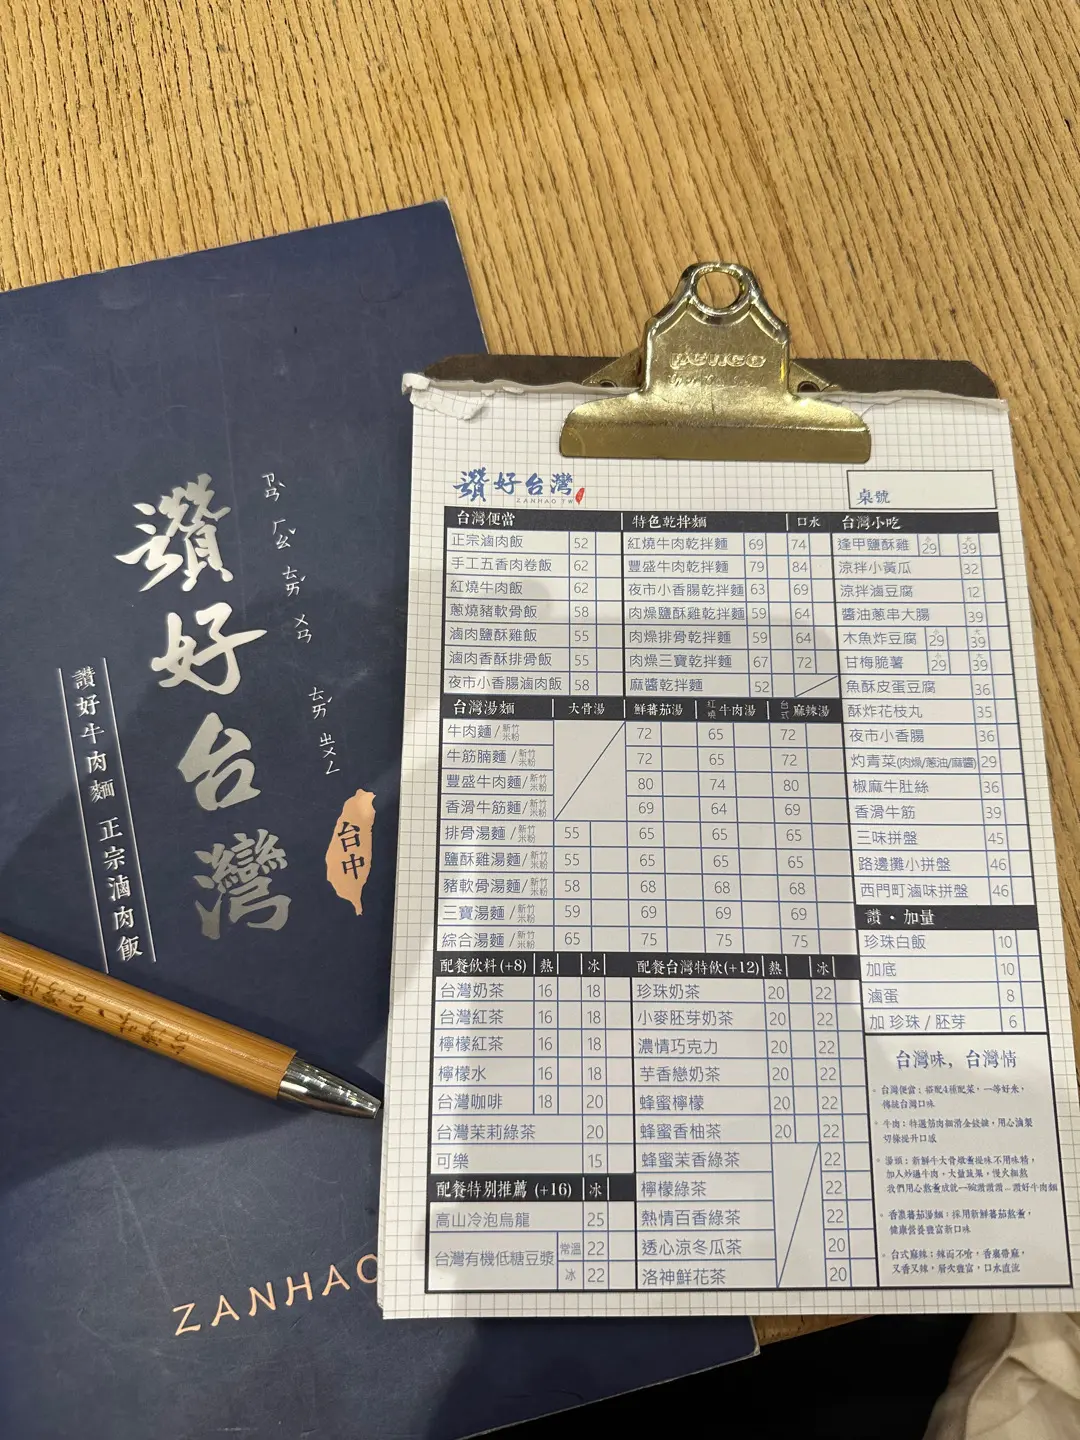 讚好台灣
ㄗㄢˋ ㄏㄠˇ ㄊㄞˊ ㄨㄢ
ㄊㄞˊ ㄓㄨㄥ
讚好牛肉麵 正宗滷肉飯
台中
台灣味．台灣情
ZANHAO
penco
讚好台灣
ZANHAO TW
桌號
台灣便當
正宗滷肉飯 52
手工五香肉卷飯 62
紅燒牛肉飯 62
蔥燒豬軟骨飯 58
滷肉鹽酥雞飯 55
滷肉香酥排骨飯 55
夜市小香腸滷肉飯 58
特色乾拌麵 口水
紅燒牛肉乾拌麵 69 74
豐盛牛肉乾拌麵 79 84
夜市小香腸乾拌麵 63 69
肉燥鹽酥雞乾拌麵 59 64
肉燥排骨乾拌麵 59 64
肉燥三寶乾拌麵 67 72
麻醬乾拌麵 52
台灣小吃
逢甲鹽酥雞 小29 大39
涼拌小黃瓜 32
涼拌滷豆腐 12
醬油蔥串大腸 39
木魚炸豆腐 小29 大39
甘梅脆薯 小29 大39
魚酥皮蛋豆腐 36
酥炸花枝丸 35
夜市小香腸 36
灼青菜(肉燥/蔥油/麻醬) 29
椒麻牛肚絲 36
香滑牛筋 39
三味拼盤 45
路邊攤小拼盤 46
西門町滷味拼盤 46
台灣湯麵 大骨湯 鮮蕃茄湯 紅燒牛肉湯 台式麻辣湯
牛肉麵/新竹米粉 72 65 72
牛筋腩麵/新竹米粉 72 65 72
豐盛牛肉麵/新竹米粉 80 74 80
香滑牛筋麵/新竹米粉 69 64 69
排骨湯麵/新竹米粉 55 65 65 65
鹽酥雞湯麵/新竹米粉 55 65 65 65
豬軟骨湯麵/新竹米粉 58 68 68 68
三寶湯麵/新竹米粉 59 69 69 69
綜合湯麵/新竹米粉 65 75 75 75
讚・加量
珍珠白飯 10
加底 10
滷蛋 8
加 珍珠/胚芽 6
配餐飲料(+8) 熱 冰
台灣奶茶 16 18
台灣紅茶 16 18
檸檬紅茶 16 18
檸檬水 16 18
台灣咖啡 18 20
台灣茉莉綠茶 20
可樂 15
配餐特別推薦 (+16) 冰
高山冷泡烏龍 25
台灣有機低糖豆漿 常溫 22
冰 22
配餐台灣特飲(+12) 熱 冰
珍珠奶茶 20 22
小麥胚芽奶茶 20 22
濃情巧克力 20 22
芋香戀奶茶 20 22
蜂蜜檸檬 20 22
蜂蜜香柚茶 20 22
蜂蜜茉香綠茶 22
檸檬綠茶 22
熱情百香綠茶 22
透心涼冬瓜茶 20
洛神鮮花茶 20
台灣味，台灣情
台灣便當：搭配4種配菜，一等好米，
傳統台灣口味
牛肉：特選筋肉細滑金錢腱，用心滷製
切條提升口感
湯頭：新鮮牛大骨燉煮提味不用味精，
加入炒過牛肉，大量蔬果，慢火細熬
我們用心熬煮成就一碗讚讚讚...讚好牛肉麵
香濃蕃茄湯麵：採用新鮮蕃茄熬煮，
健康營養豐富新口味
台式麻辣：辣而不嗆，香裏帶麻，
又香又辣，層次豐富，口水直流